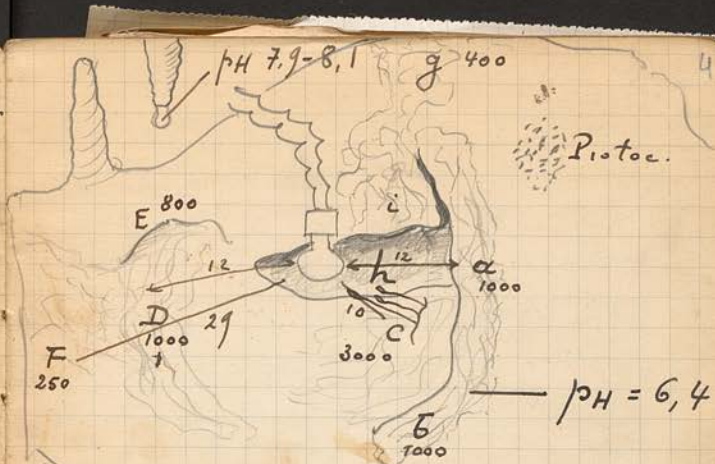 pH 7,9-8,1
g 400
4
Protoc.
E 800
i
12
h 12
α
1000
D
1000
29
10
C
3000
F
250
pH = 6,4
Б
1000